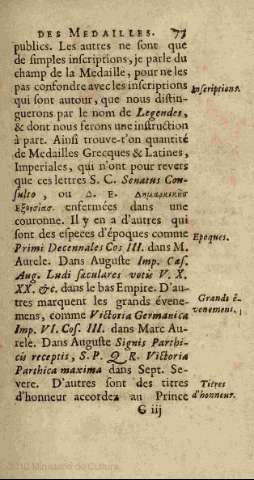 DES MEDAILLES. 77
publics. Les autres ne sont que
de simples inscriptions, je parle du
champ de la Medaille, pour ne les
pas confondre avec les inscriptions
Inscriptions.
qui sont autour, que nous distin-
guerons par le nom de Legendes,
& dont nous ferons une instruction
à part. Ainsi trouve-t'on quantité
de Medailles Grecques & Latines,
Imperiales, qui n'ont pour revers
que ces lettres S. C. Senatus Con-
sulto, ou Δ. Ε. Δημαρχικῆς
Ἐξουσίας enfermées dans une
couronne. Il y en a d'autres qui
sont des especes d'époques comme
Epoques.
Primi Decennales Cos III. dans M.
Aurele. Dans Auguste Imp. Cæs.
Aug. Ludi sæculares votis V. X.
XX. &c. dans le bas Empire. D'au-
tres marquent les grands évene-
Grands é-
venemens.
mens, comme Victoria Germanica
Imp. VI. Cos. III. dans Marc Au-
rele. Dans Auguste Signis Parthi-
cis receptis, S. P. Q. R. Victoria
Parthica maxima dans Sept. Se-
vere. D'autres sont des titres
Titres
d'honneur accordez au Prince
d'honneur.
G iij
2010 Ministerio de Cultura